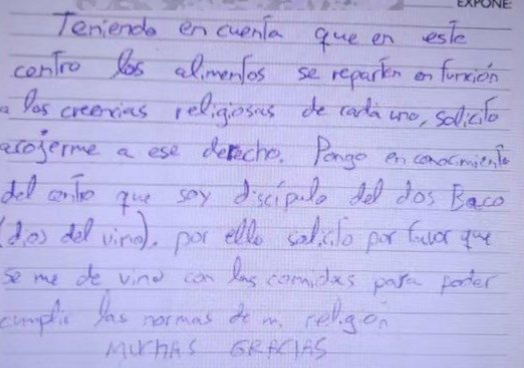 EXPONE:
Teniendo en cuenta que en este
centro los alimentos se reparten en función
a las creencias religiosas de cada uno, solicito
acojerme a ese derecho. Pongo en conocimiento
del centro que soy discípulo del dios Baco
(dios del vino). por ello solicito por favor que
se me de vino con las comidas para poder
cumplir las normas de mi religion
MUCHAS GRACIAS